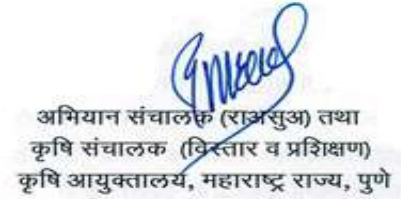 अभियान संचालक (राअसुअ) तथा
कृषि संचालक (विस्तार व प्रशिक्षण)
कृषि आयुक्तालय, महाराष्ट्र राज्य, पुणे